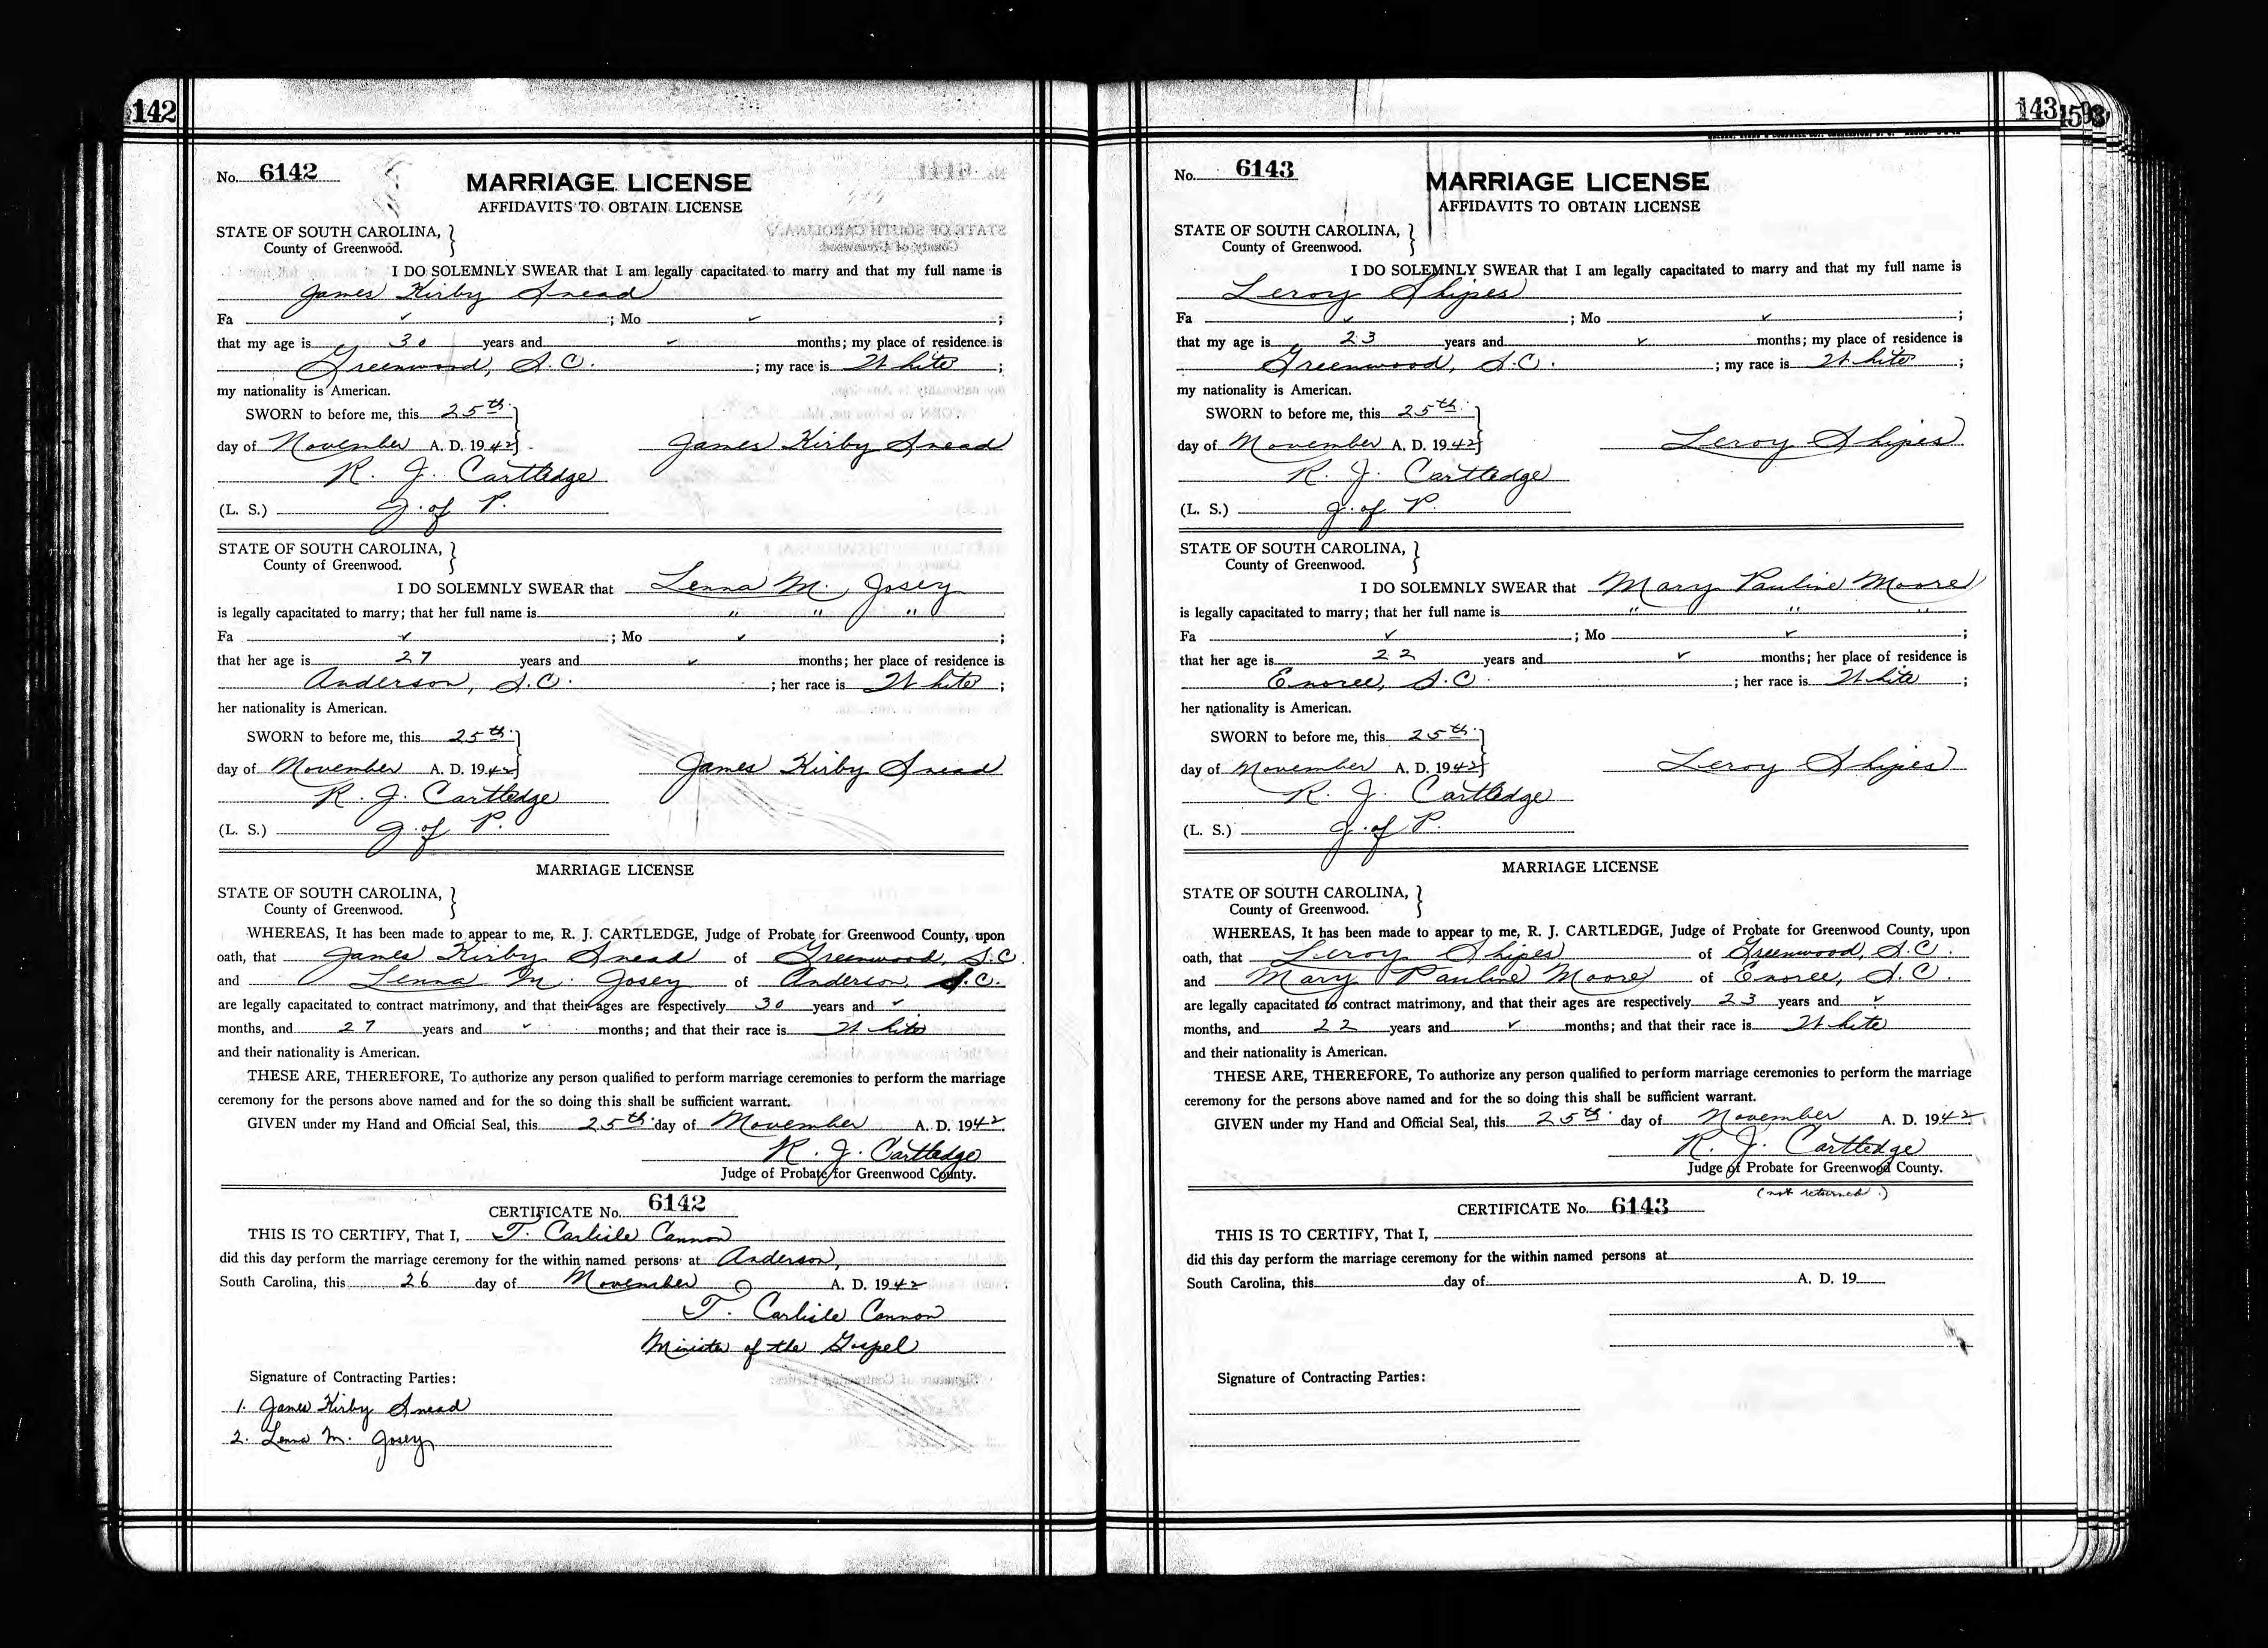 142
No. 6142
MARRIAGE LICENSE
AFFIDAVITS TO OBTAIN LICENSE
STATE OF SOUTH CAROLINA,
County of Greenwood.
I DO SOLEMNLY SWEAR that I am legally capacitated to marry and that my full name is
James Kirby Snead
Fa ✓ ; Mo ✓ ;
that my age is 30 years and ✓ months; my place of residence is
Greenwood, S.C. ; my race is White ;
my nationality is American.
SWORN to before me, this 25th.
day of November A. D. 1942 James Kirby Snead
R. J. Cartledge
(L. S.) J. of P.
STATE OF SOUTH CAROLINA,
County of Greenwood.
I DO SOLEMNLY SWEAR that Lenna M. Josey
is legally capacitated to marry; that her full name is " " "
Fa ✓ ; Mo ✓ ;
that her age is 27 years and ✓ months; her place of residence is
Anderson, S.C. ; her race is White ;
her nationality is American.
SWORN to before me, this 25th.
day of November A. D. 1942 James Kirby Snead
R. J. Cartledge
(L. S.) J. of P.
MARRIAGE LICENSE
STATE OF SOUTH CAROLINA,
County of Greenwood.
WHEREAS, It has been made to appear to me, R. J. CARTLEDGE, Judge of Probate for Greenwood County, upon
oath, that James Kirby Snead of Greenwood, S.C.
and Lenna M. Josey of Anderson, S.C.
are legally capacitated to contract matrimony, and that their ages are respectively 30 years and ✓
months, and 27 years and ✓ months; and that their race is White
and their nationality is American.
THESE ARE, THEREFORE, To authorize any person qualified to perform marriage ceremonies to perform the marriage
ceremony for the persons above named and for the so doing this shall be sufficient warrant.
GIVEN under my Hand and Official Seal, this 25th. day of November A. D. 1942.
R. J. Cartledge
Judge of Probate for Greenwood County.
CERTIFICATE No. 6142
THIS IS TO CERTIFY, That I, T. Carlisle Cannon
did this day perform the marriage ceremony for the within named persons at Anderson,
South Carolina, this 26 day of November A. D. 1942
T. Carlisle Cannon
Minister of the Gospel
Signature of Contracting Parties:
1. James Kirby Snead
2. Lenna M. Josey
143
No. 6143
MARRIAGE LICENSE
AFFIDAVITS TO OBTAIN LICENSE
STATE OF SOUTH CAROLINA,
County of Greenwood.
I DO SOLEMNLY SWEAR that I am legally capacitated to marry and that my full name is
Leroy Shipes
Fa ✓ ; Mo ✓ ;
that my age is 23 years and ✓ months; my place of residence is
Greenwood, S.C. ; my race is White ;
my nationality is American.
SWORN to before me, this 25th.
day of November A. D. 1942 Leroy Shipes
R. J. Cartledge
(L. S.) J. of P.
STATE OF SOUTH CAROLINA,
County of Greenwood.
I DO SOLEMNLY SWEAR that Mary Pauline Moore
is legally capacitated to marry; that her full name is " " "
Fa ✓ ; Mo ✓ ;
that her age is 22 years and ✓ months; her place of residence is
Enoree, S.C. ; her race is White ;
her nationality is American.
SWORN to before me, this 25th.
day of November A. D. 1942 Leroy Shipes
R. J. Cartledge
(L. S.) J. of P.
MARRIAGE LICENSE
STATE OF SOUTH CAROLINA,
County of Greenwood.
WHEREAS, It has been made to appear to me, R. J. CARTLEDGE, Judge of Probate for Greenwood County, upon
oath, that Leroy Shipes of Greenwood, S.C.
and Mary Pauline Moore of Enoree, S.C.
are legally capacitated to contract matrimony, and that their ages are respectively 23 years and ✓
months, and 22 years and ✓ months; and that their race is White
and their nationality is American.
THESE ARE, THEREFORE, To authorize any person qualified to perform marriage ceremonies to perform the marriage
ceremony for the persons above named and for the so doing this shall be sufficient warrant.
GIVEN under my Hand and Official Seal, this 25th. day of November A. D. 1942.
R. J. Cartledge
Judge of Probate for Greenwood County.
(not returned.)
CERTIFICATE No. 6143
THIS IS TO CERTIFY, That I,
did this day perform the marriage ceremony for the within named persons at
South Carolina, this day of A. D. 19
Signature of Contracting Parties: